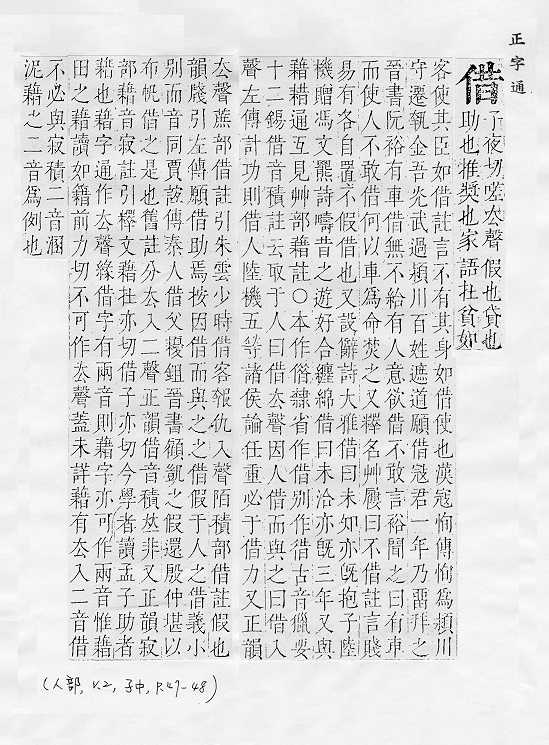 正字通
借 子夜切嗟去聲假也貸也
助也推奬也家語杜貧如
客使其臣如借註言不有其身如借使也漢寇恂傳恂爲潁川
守遷執金吾光武過潁川百姓遮道願借寇君一年乃畱拜之
晉書阮裕有車借無不給有人意欲借不敢言裕聞之曰有車
而使人不敢借何以車爲命焚之又釋名艸屨曰不借註言賤
易有各自置不假借也又設辭詩大雅借曰未知亦旣抱子陸
機贈馮文羆詩疇昔之遊好合纏綿借曰未洽亦旣三年又與
藉耤通互見艸部藉註〇本作俗隸省作借別作徣古音獵要
十二錫借音積註云取于人曰借去聲因人借而與之曰借入
聲左傳計功則借人陸機五等諸侯論任重必于借力又正韻
去聲蔗部借註引朱雲少時借客報仇入聲陌積部借註假也
韻牋引左傳願借助焉按因借而與之之借假于人之借義小
別而音同賈誼傳秦人借父耰鉏晉書顧覬之假還殷仲堪以
布帆借之是也舊註分去入二聲正韻借音積𠀤非又正韻寂
部藉音寂註引檡文藉扗亦切借子亦切今學者讀孟子助者
藉也藉字通作去聲緣借字有兩音則藉字亦可作兩音惟藉
田之藉讀如籍前力切不可作去聲蓋未詳藉有去入二音借
不必與寂積二音溷
泥藉之二音爲例也
(人部, v.2, 子中, P.47-48)